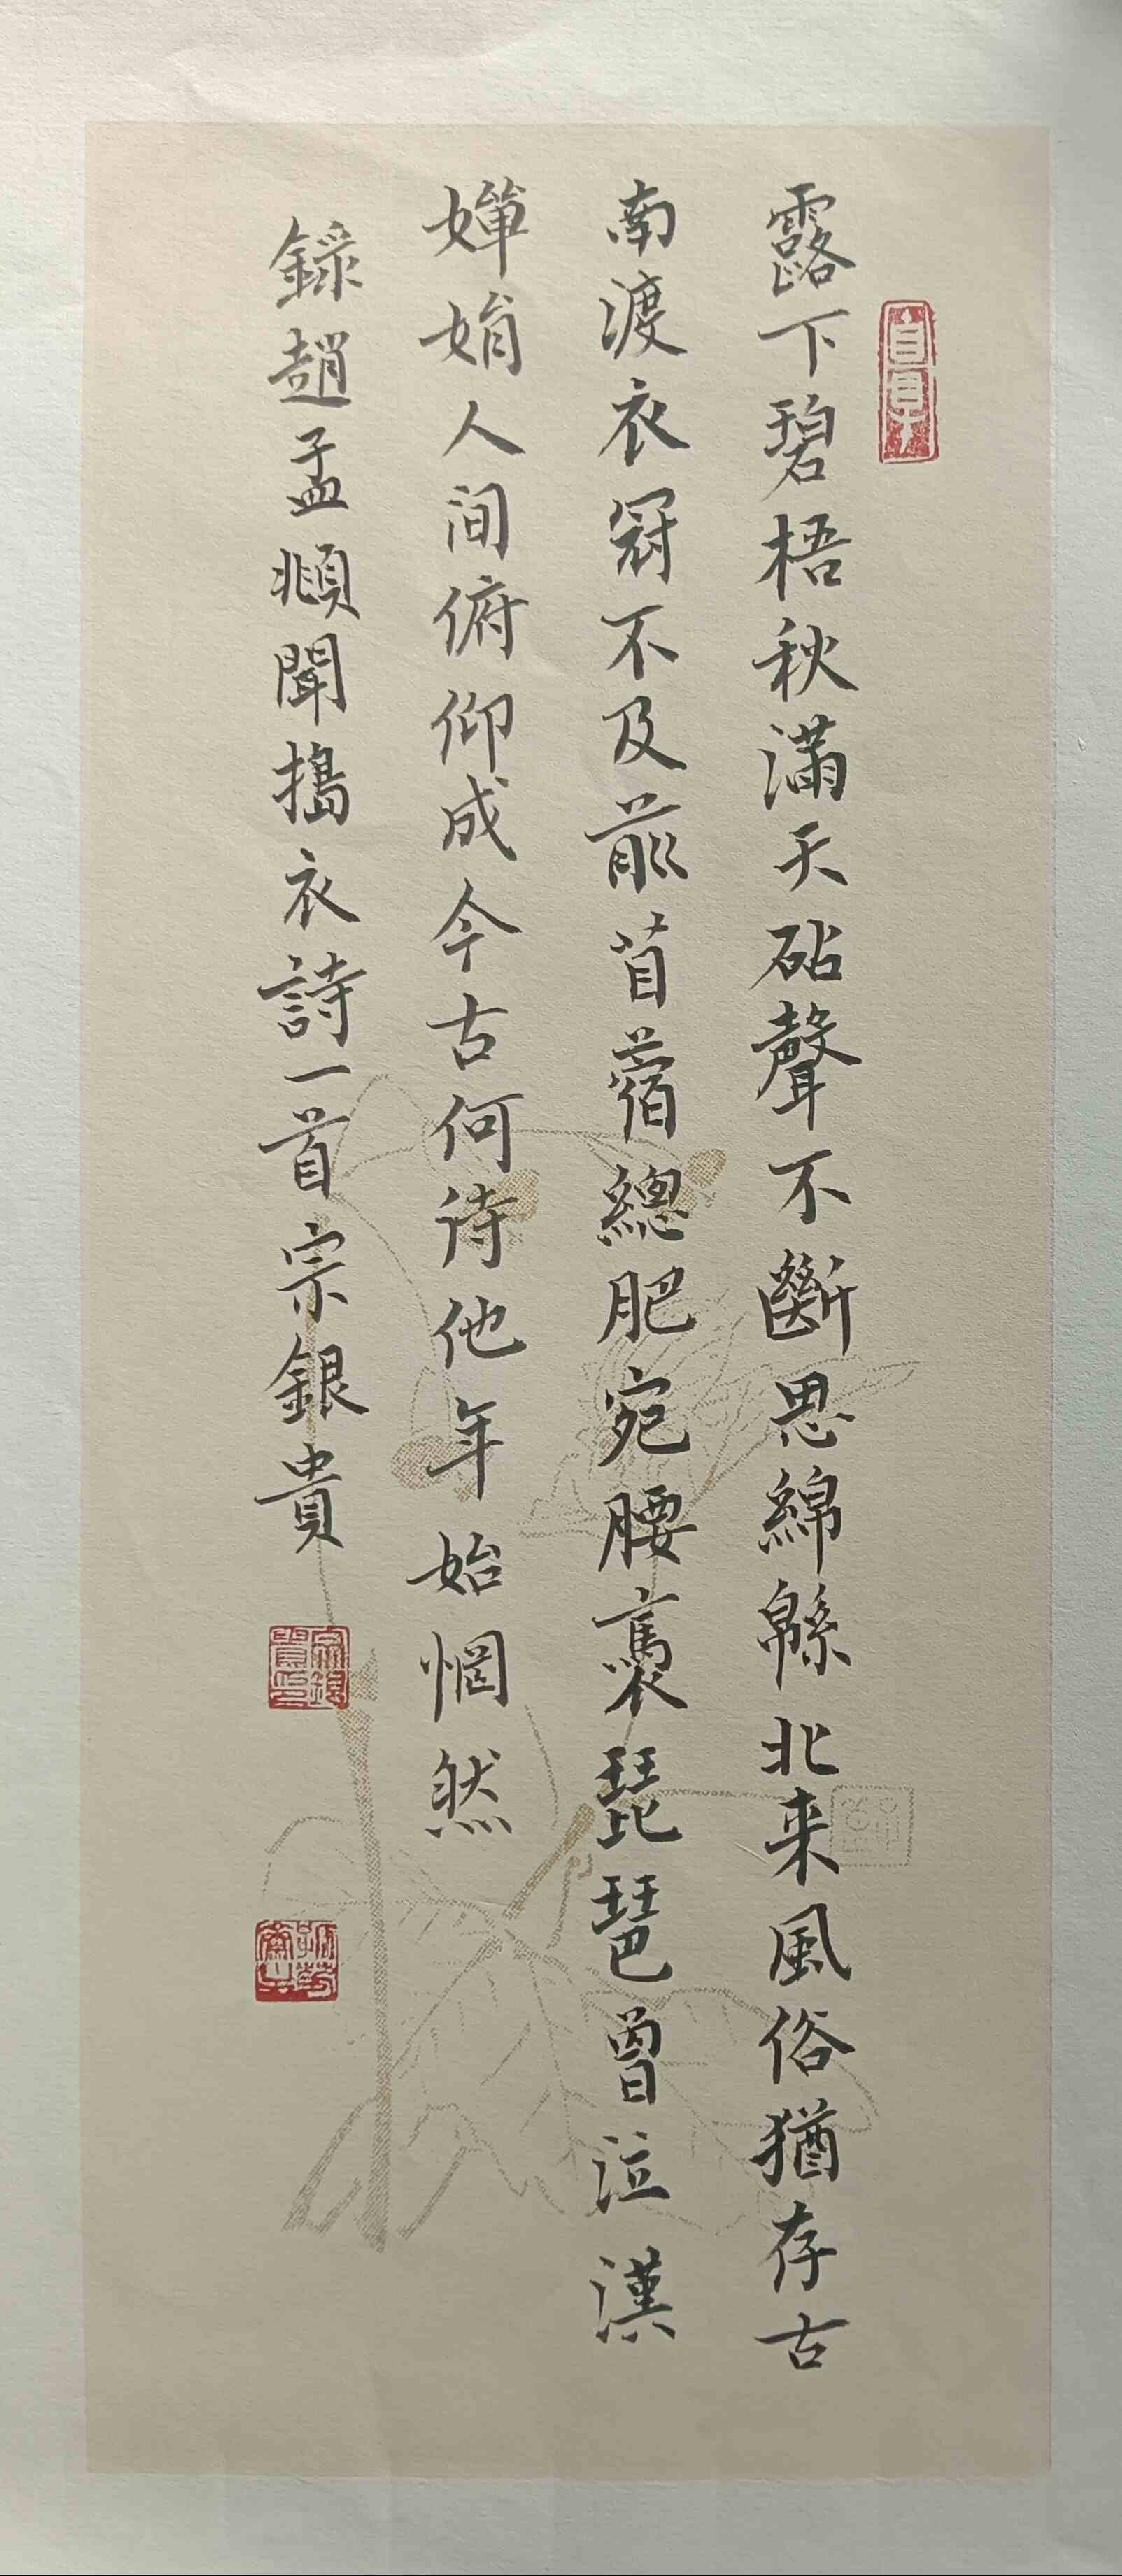 露下碧梧秋滿天砧聲不斷思綿緜北来風俗猶存古
南渡衣冠不及前苜蓿總肥宛腰褭琵琶曾泣漢
嬋娟人间俯仰成今古何待他年始惘然
錄趙孟頫聞搗衣詩一首宗銀貴
宗銀貴印